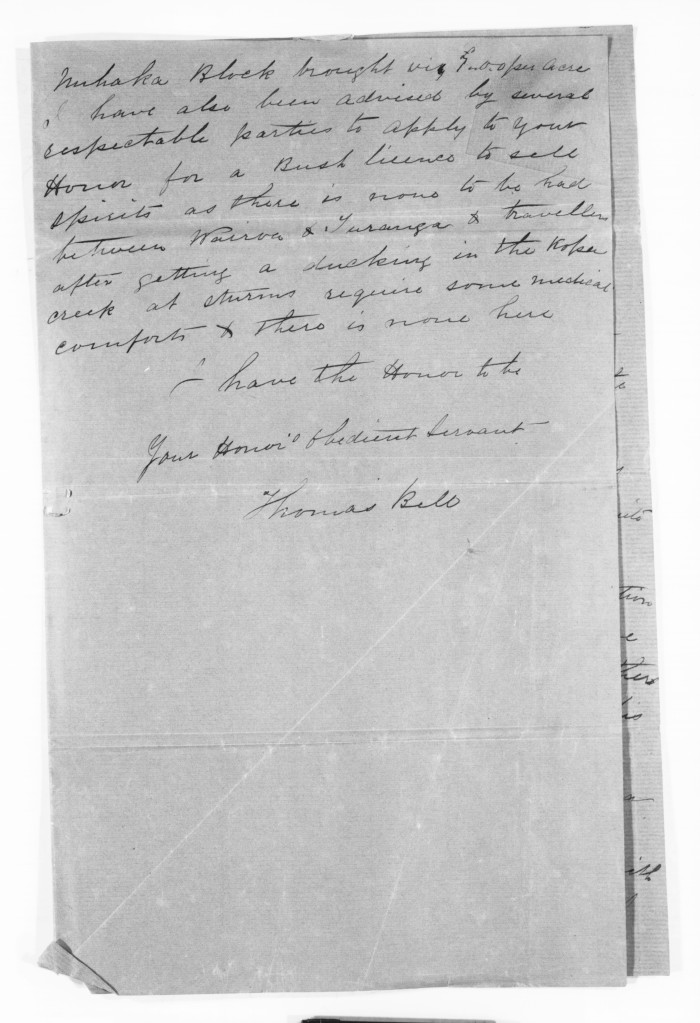 Nuhaka Block brought viz per acre
I have also been advised by several
respectable parties to apply to your
Honor for a Bush licence to sell
spirits as there is none to be had
between Wairoa & Turanga & travellers
after getting a ducking in the
creek at sturms require some medical
comforts & there is none here
I have the Honor to be
Your Honor's Obedient Servant
Thomas Bell